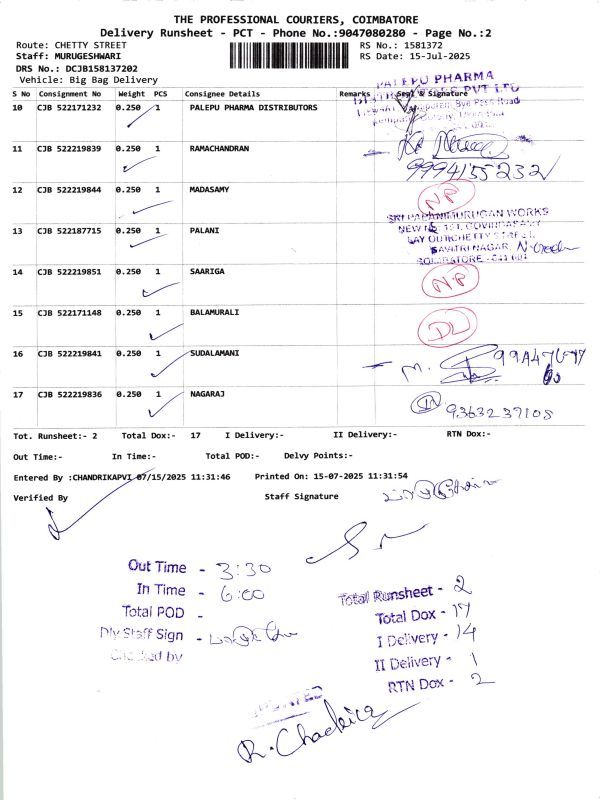 THE PROFESSIONAL COURIERS, COIMBATORE
Delivery Runsheet - PCT - Phone No.:9047080280 - Page No.:2
Route: CHETTY STREET
RS No.: 1581372
Staff: MURUGESHWARI
RS Date: 15-Jul-2025
DRS No.: DCJB158137202
Vehicle: Big Bag Delivery
PALEPU PHARMA
S No Consignment No Weight PCS Consignee Details Remarks Seal & Signature
10 CJB 522171232 0.250 1 PALEPU PHARMA DISTRIBUTORS
Bye Pass Road
11 CJB 522219839 0.250 1 RAMACHANDRAN
9994155232
12 CJB 522219844 0.250 1 MADASAMY
NP
SRI PALANIMURUGAN WORKS
13 CJB 522187715 0.250 1 PALANI
NEW No: 151, GOVINDASAMY
LAY OUT, CHETTY STREET,
SAVITRI NAGAR,
COIMBATORE - 641 001
14 CJB 522219851 0.250 1 SAARIGA
NP
15 CJB 522171148 0.250 1 BALAMURALI
DL
16 CJB 522219841 0.250 1 SUDALAMANI
M.
17 CJB 522219836 0.250 1 NAGARAJ
IN
9363237108
Tot. Runsheet:- 2 Total Dox:- 17 I Delivery:- II Delivery:- RTN Dox:-
Out Time:- In Time:- Total POD:- Delvy Points:-
Entered By :CHANDRIKAPVI 07/15/2025 11:31:46 Printed On: 15-07-2025 11:31:54
Verified By Staff Signature
Out Time - 3:30
In Time - 6:00
Total POD -
Dly Staff Sign -
Checked by
Total Runsheet - 2
Total Dox - 17
I Delivery - 14
II Delivery - 1
RTN Dox - 2